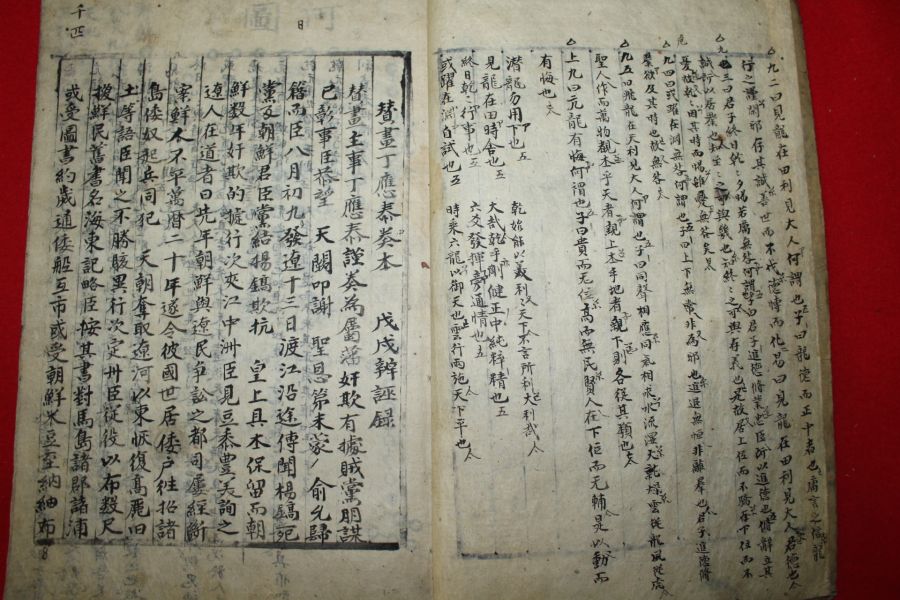 九二曰見龍在田利見大人何謂也子曰龍德而正中者也庸言之信
行之謹閑邪存其誠善世而不伐德博而化易曰見龍在田利見大人君德也
九三曰君子終日乾〻夕惕若厲無咎何謂子曰君子進德修業忠信所以進德也修辭立其
誠所以居業也知至〻之可與幾也知終〻之可與存義也是故居上位而不驕在下位而不
憂故乾〻因其時而惕雖憂無咎矣
九四曰或躍在淵無咎何謂也子曰上下無常非爲邪也進退無恒非離群也君子進德修
業欲及其時也故無咎
九五曰飛龍在天利見大人何謂也子曰同聲相應同氣相求水流濕火就燥雲從龍風從虎
聖人作而萬物覩本乎天者親上本乎地者親下則各從其類也
上九曰亢龍有悔何謂也子曰貴而无位高而無民賢人在下位而無輔是以動而
有悔也
潛龍勿用下也 乾始能以美利〻天下不言所利大矣哉
見龍在田時舍也 大哉乾乎剛健正中純粹精也
終日乾〻行事也 六爻發揮旁通情也
或躍在淵自試也 時乘六龍以御天也雲行雨施天下平也
贊畫丁應泰奏本 戊戌辨誣録
贊畫主事丁應泰謹奏爲屬藩奸欺有據賊黨朋謀
已彰事臣恭望 天闕叩謝 聖恩第未蒙 俞允歸
籍而臣八月初九發遼十三日渡江沿途傳聞楊鎬死
黨及朝鮮君臣黨結楊鎬欺抗 皇上具本保留而朝
鮮數年奸欺的據行次夾江中洲臣見豆黍豊美詢之
遼人在道者曰先年朝鮮與遼民爭訟之都司屢經斷
案鮮人不平萬曆二十年遂令彼國世居倭户往招諸
島倭奴起兵同犯 天朝奪取遼河以東恢復高麗旧
土等語臣聞之不勝駭異行次定州臣從役以布數尺
換鮮民舊書名海東記略臣按其書對馬島諸郡諸浦
或受圖書約歲通倭船互市或受朝鮮米豆至納紬布